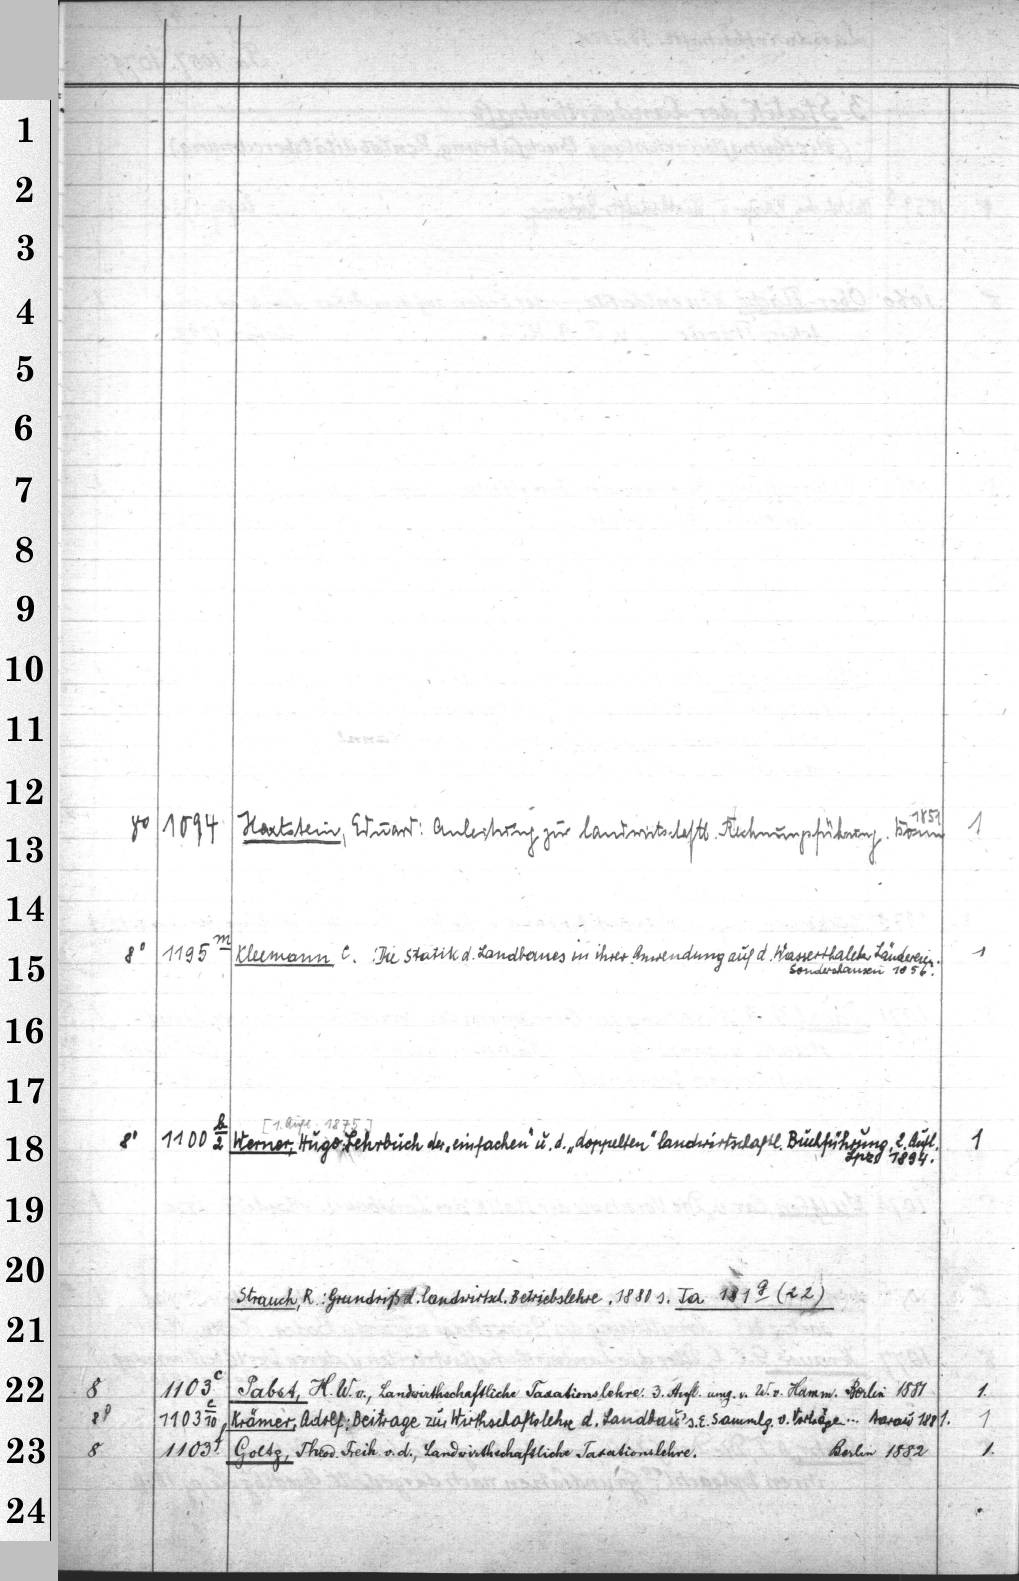 1
2
3
4
5
6
7
8
9
10
11
12
8° 1094 Hartstein, Eduard: Anleitung zur landwirtschaftl. Rechnungsführung. Bonn 1851 1
13
14
8° 1195 m Kleemann C. Die Statik d. Landbaues in ihrer Anwendung auf d. Länderein. 1
Sondershausen 1856.
15
16
17
[1. Aufl. 1875]
8° 1100 b/2 Werner, Hugo: Lehrbuch der „einfachen" u. d. „doppelten" landwirtschaftl. Buchführung. 2. Aufl. 1
Lpzg 1894.
18
19
20
Strauch, R.: Grundriß d. landwirtsch. Betriebslehre. 1880 s. Ta 181 q (22)
21
8 1103 c Pabst, H. W. v., Landwirthschaftliche Taxationslehre. 3. Aufl. umg. v. W. v. Hamm. Berlin 1881 1.
22
8° 1103 c/10 Krämer, Adolf: Beitrage zur Wirthschaftslehre d. Landbau's. E. Sammlg. v. Vorträge... Aarau 1881. 1
8 1103 f Goltz, Theod. Freih. v. d., Landwirthschaftliche Taxationslehre. Berlin 1882 1.
23
24